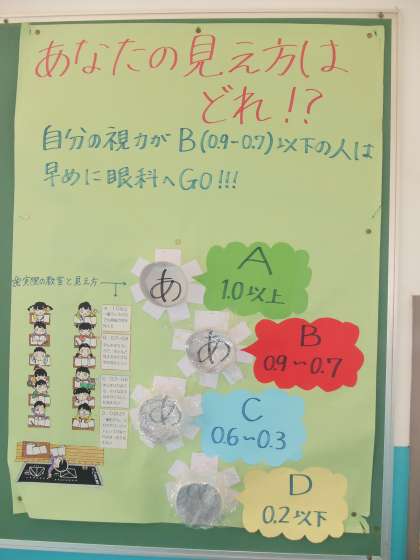 あなたの見え方は
どれ!?
自分の視力がB(0.9-0.7)以下の人は
早めに眼科へGO!!!
実際の教室と見え方
あ
A
1.0以上
あ
B
0.9~0.7
あ
C
0.6~0.3
D
0.2以下